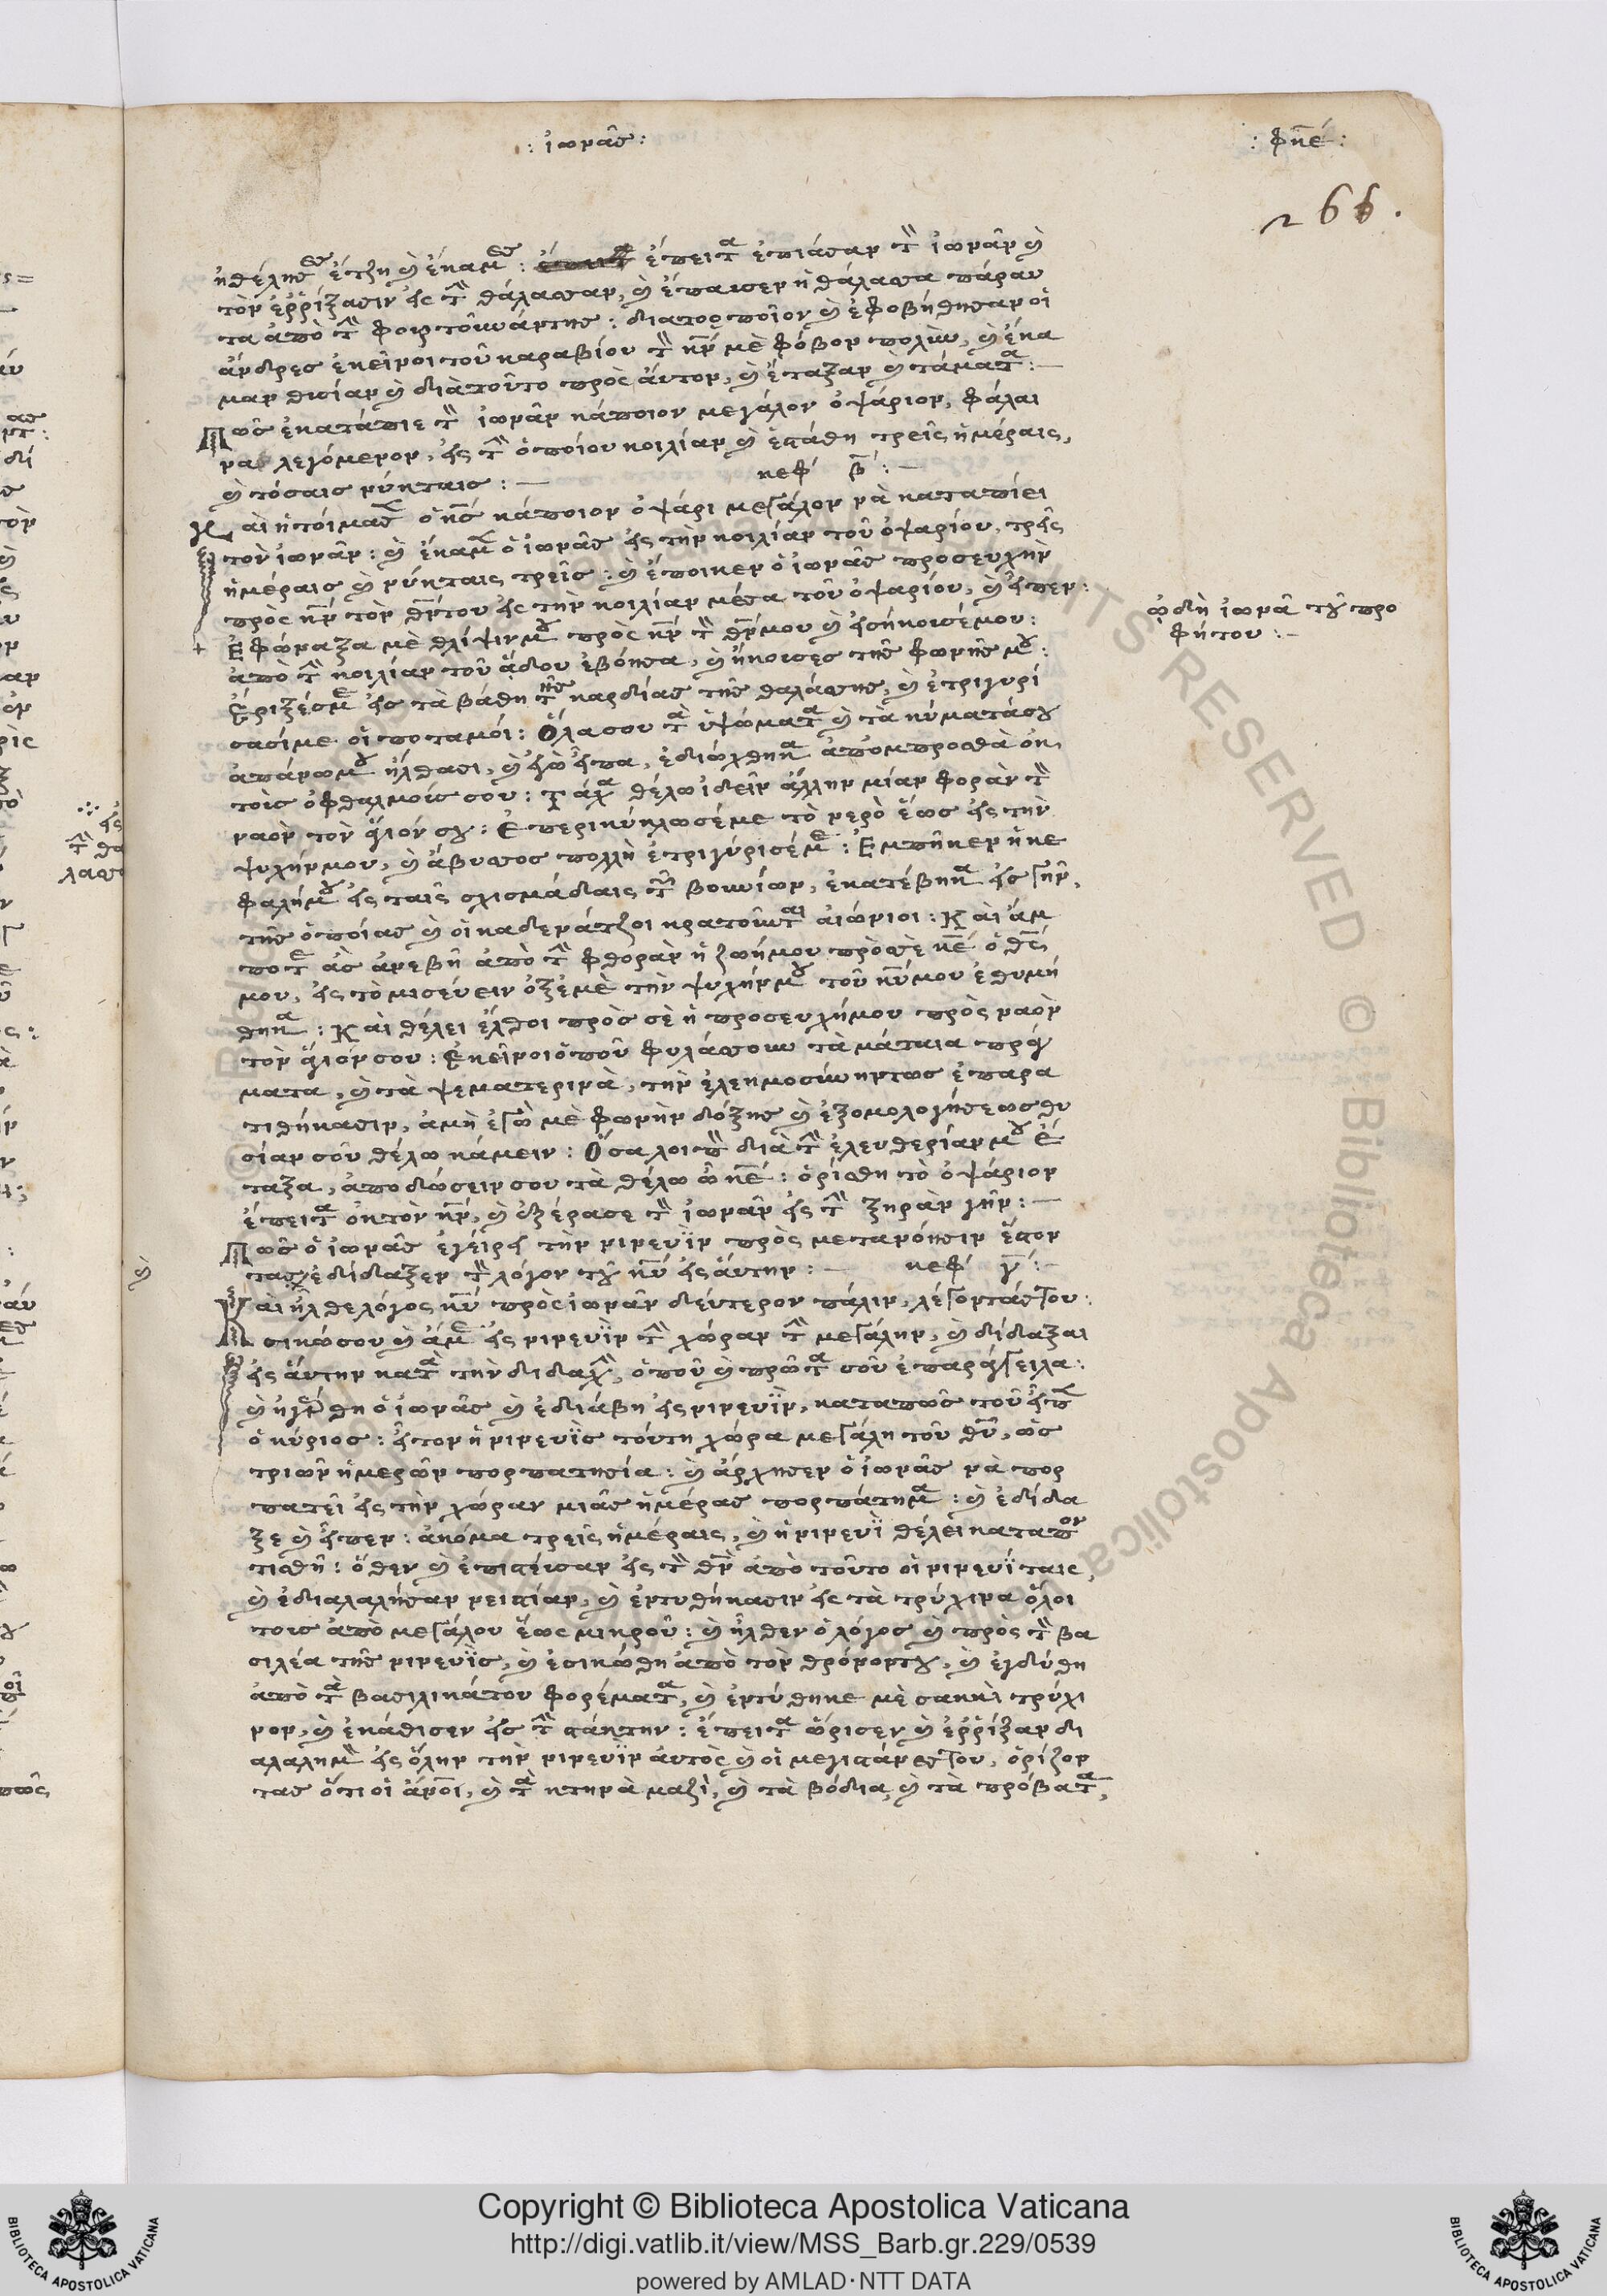 : ἰωνᾶς :
: φκε :
266.
ἠθέλησες ἔτζη καὶ ἔκαμες : ἔπειτα ἐπιάσαν τὸν ἰωνᾶν καὶ
τὸν ἐρρίξασιν εἰς τὴν θάλασσαν, καὶ ἔπαυσεν ἡ θάλασσα πάραυ
τα ἀπὸ τὴν φουρτοῦναν της : διατοσποῖον καὶ ἐφοβήθησαν οἱ
ἄνδρες ἐκεῖνοι τοῦ καραβίου τὸν κν μὲ φόβον πολὺν, καὶ ἔκα
μαν θυσίαν καὶ διὰ τοῦτο πρὸς αὐτον, καὶ ἔταξαν καὶ τάματα :
Πῶς ἐκατάπιε τὸν ἰωνᾶν κάποιον μεγάλον ὀψάριον, φάλαι
να λεγόμενον, εἰς τὴν ὁποίου κοιλίαν καὶ ἐστάθη τρεῖς ἡμέραις,
καὶ τόσαις νύκταις : κεφ β :
Καὶ ἡτοίμασεν ὁ κς κάποιον ὀψάρι μεγάλον νὰ καταπίει
τὸν ἰωνᾶν : καὶ ἔκαμεν ὁ ἰωνᾶς εἰς τὴν κοιλίαν τοῦ ὀψαρίου, τρεῖς
ἡμέραις καὶ νύκταις τρεῖς : καὶ ἔποικεν ὁ ἰωνᾶς προσευχὴν
πρὸς κν τὸν θν του εἰς τὴν κοιλίαν μέσα τοῦ ὀψαρίου, καὶ εἶπεν :
ᾠδὴ ἰωνᾶ τοῦ προ
φήτου :
+ Ἐφώναξα μὲ θλίψιν μου πρὸς κν τὸν θν μου καὶ εἰσήκουσέ μου :
ἀπὸ τὴν κοιλίαν τοῦ ἅδου ἐβόησα, καὶ ἤκουσες τῆς φωνῆς μου :
Ἔριξές με εἰς τὰ βάθη τῆς καρδίας τῆς θαλάσσης, καὶ ἐτριγυρί
σασί με οἱ ποταμοί : Ὅλα σου τὰ ὑψώματα καὶ τὰ κύματά σου
ἀπάνω μου ἤλθασι, καὶ ἐγὼ εἶπα, ἐδιώχθηκα ἀπὸμπροσθὰ ἐκ
τοῖς ὀφθαλμοῖς σου : Τάχα θέλω ἰδεῖν ἄλλην μίαν φορὰν τὸν
ναὸν τὸν ἅγιόν σου : Ἐπερικύκλωσέ με τὸ νερὸ ἕως εἰς τὴν
ψυχήν μου, καὶ ἄβυσσος πολλὴ ἐτριγύρισέ με : Ἐμπῆκεν ἡ κε
φαλή μου εἰς ταῖς σχισμάδαις τῶν βουνίων, ἐκατέβηκα εἰς γῆν,
τῆς ὁποίας καὶ οἱ καδενάτζοι κρατοῦνται αἰώνιοι : Καὶ ἄμ
ποτε ἂς ἀνεβῆ ἀπὸ τὴν φθορὰν ἡ ζωή μου πρὸς σὲ κε ὁ θς
μου, εἰς τὸ μισεύειν ὀξέμὲ τὴν ψυχήν μου τοῦ κυ μου ἐθυμή
θηκα : Καὶ θέλει ἔλθοι πρὸς σὲ ἡ προσευχή μου πρὸς ναὸν
τὸν ἅγιόν σου : Ἐκεῖνοι ὁποῦ φυλάσσουν τὰ μάταια πράγ
ματα, καὶ τὰ ψεματερινὰ, τὴν ἐλεημοσύνην τως ἐπαρα
τιθήκασιν, ἀμὴ ἐγὼ μὲ φωνὴν δόξης καὶ ἐξομολογήσεως θυ
σίαν σοῦ θέλω κάμειν : Ὅσα λοιπὸν διὰ τὴν ἐλευθερίαν μου ἔ
ταξα, ἀποδώσειν σου τὰ θέλω ὦ κε : ὁρίσθη τὸ ὀψάριον
ἔπειτα ἐκ τὸν κν, καὶ ἐξέρασε τὸν ἰωνᾶν εἰς τὴν ξηρὰν γῆν :
Πῶς ὁ ἰωνᾶς ἐγείρει τὴν νινευῒν πρὸς μετανόησιν ἔστον
τας ἐδίδαξεν τὸν λόγον τοῦ κυ εἰς αὐτην : κεφ γ :
Καὶ ἦλθε λόγος κυ πρὸς ἰωνᾶν δεύτερον πάλιν, λέγοντάς του :
σικώσου καὶ ἄμε εἰς νινευῒν τὴν χώραν τὴν μεγάλην, καὶ δίδαξαι
εἰς αὐτην κατὰ τὴν διδαχὴν, ὁποῦ καὶ πρῶτα σοῦ ἐπαράγγειλα :
καὶ ἠγέρθη ὁ ἰωνᾶς καὶ ἐδιάβη εἰς νινευῒν, καταπῶς τοῦ εἶπεν
ὁ κύριος : εἶτον ἡ νινευῒς τούτη χώρα μεγάλη τοῦ θυ, ὡς
τριῶν ἡμερῶν πορπατησία : καὶ ἄρχησεν ὁ ἰωνᾶς νὰ πορ
πατεῖ εἰς τὴν χώραν μιᾶς ἡμέρας πορπάτημα : καὶ ἐδίδα
ξε καὶ εἶπεν : ἀκόμα τρεῖς ἡμέραις, καὶ ἡ νινευῒ θέλει καταπον
τισθῆ : ὅθεν καὶ ἐπιστεύσαν εἰς τὸν θν ἀπὸ τοῦτο οἱ νινευῒταις,
καὶ ἐδιαλαλήσαν νειστίαν, καὶ ἐντυθήκασιν εἰς τὰ τρύχινα ὅλοι
τους ἀπὸ μεγάλου ἕως μικροῦ : καὶ ἦλθεν ὁ λόγος καὶ πρὸς τὸν βα
σιλέα τῆς νινευῒς, καὶ ἐσικώθη ἀπὸ τὸν θρόνον του, καὶ ἐγδύθη
ἀπὸ τὰ βασιλικά του φορέματα, καὶ ἐντύθηκε μὲ σακκὶ τρύχι
νον, καὶ ἐκάθισεν εἰς τὴν στάκτην : ἔπειτα ὥρισεν καὶ ἐρρίξαν δι
αλαλημὸν εἰς ὅλην τὴν νινευῒν αὐτὸς καὶ οἱ μεγιστάνες του, ὁρίζον
τας ὅτι οἱ ἄνοι, καὶ τὰ κτηνὰ μαζὶ, καὶ τὰ βόδια, καὶ τὰ πρόβατα,
Copyright © Biblioteca Apostolica Vaticana
http://digi.vatlib.it/view/MSS_Barb.gr.229/0539
powered by AMLAD·NTT DATA